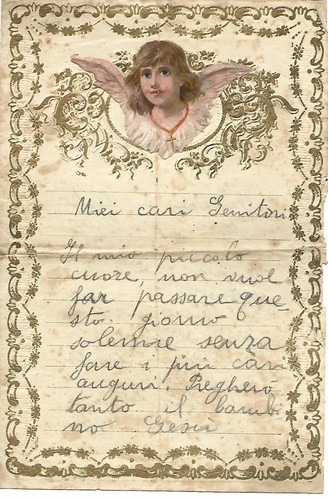 Miei cari Genitori
Il mio piccolo
cuore, non vuol
far passare que
sto giorno
solenne senza
fare i più cari
auguri. Pregherò
tanto il bambi
no Gesù